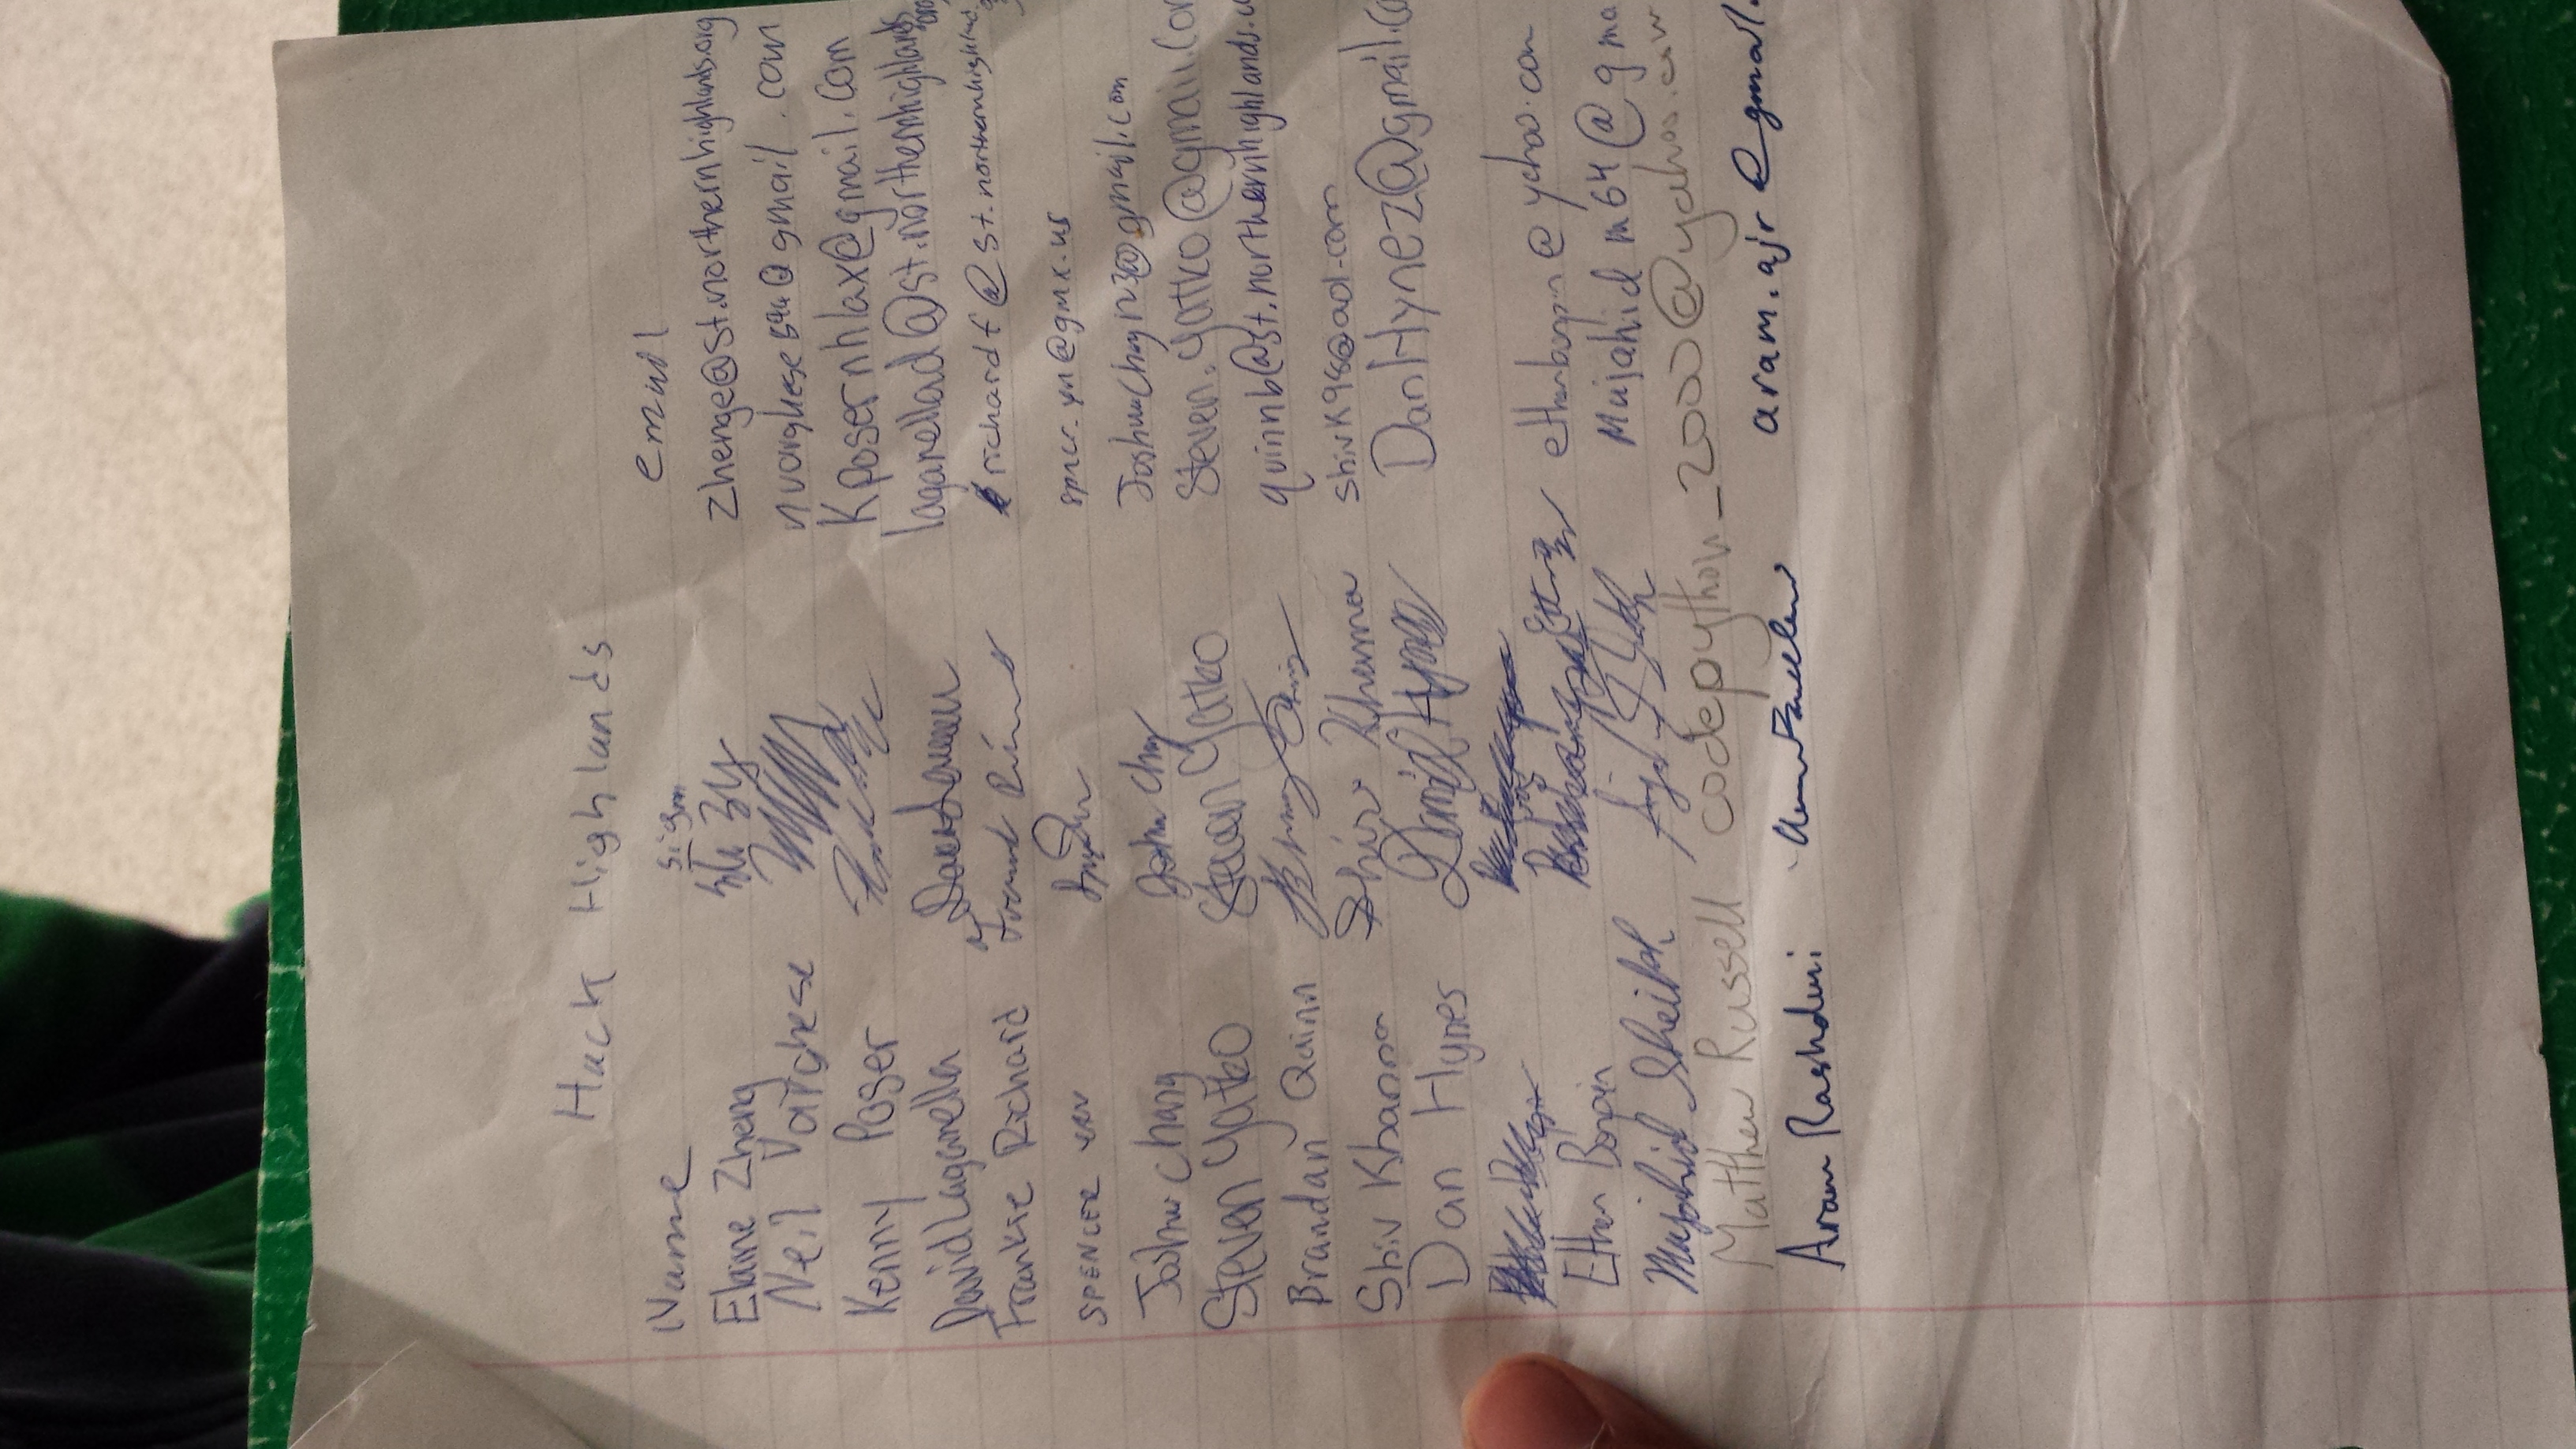 Hack Highlands
Name sign email
Elaine Zheng zhenge@st.northernhighlands.org
Neil Varghese nvarghese594@gmail.com
Kenny Poser Kposernhlax@gmail.com
David Laganella laganellad@st.northernhighlands.org
Frankie Richard richardf@st.northernhighlands.
SPENCER YAN spncr.yn@gmx.us
Joshua Chang Joshua Chang JoshuaChang123@gmail.com
Steven Yatko Steven Yatko Steven.yatko@gmail.com
Brandan Quinn quinnb@st.northernhighlands.o
Shiv Khanna Shiv Khanna shivk98@aol.com
Dan Hynes Daniel Hynes DanHynez@gmail.co
Ethan Bonpin ethanbonpin@yahoo.com
Mujahid Sheikh Mujahid m64@gma
Matthew Russell codepython_2000@yahoo.com
Aram aram.ajr@gmail.